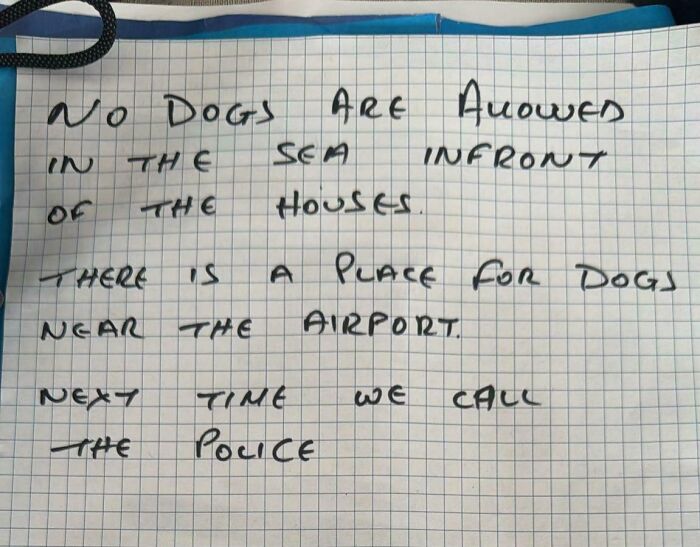 NO DOGS ARE ALLOWED
IN THE SEA INFRONT
OF THE HOUSES.
THERE IS A PLACE FOR DOGS
NEAR THE AIRPORT.
NEXT TIME WE CALL
THE POLICE